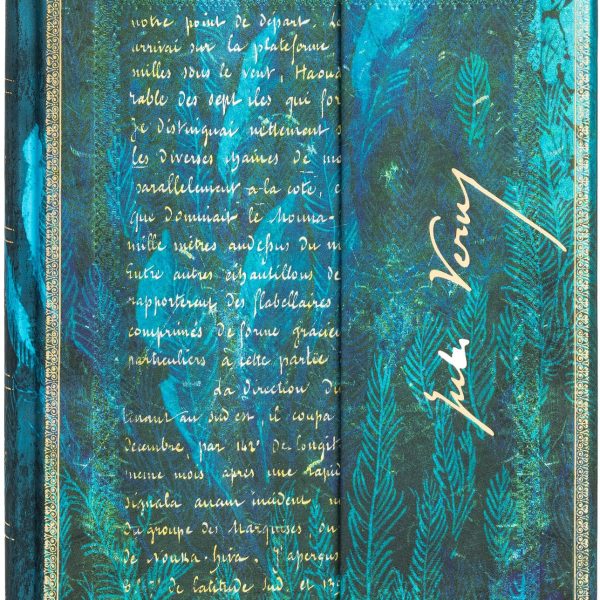 notre point de départ. La
arrivai sur la plateforme
milles sous le vent, Haoua
rable des sept iles qui for
Je distinguai nettement
les diverses chaînes de mo
parallèlement à la côte, e
que dominait le Mouna-
mille mètres au dessus du n
Entre autres échantillons de
rapportèrent des flabellaires
comprimés de forme gracieu
particuliers à cette partie
La direction Du
tinaut au sud est, il coupa
décembre, par 142° de longit
meme mois après une rapid
signala aucun incident n
du groupe des Marquises ou
de Nouka-hiva. J'aperçus
de latitude Sud, et 139
Jules Verne